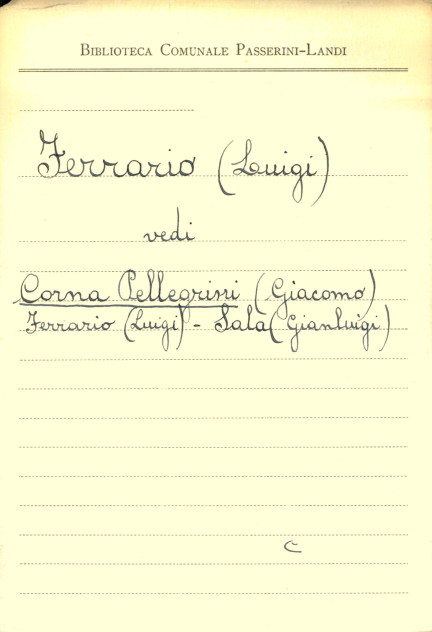 Biblioteca Comunale Passerini-Landi
Ferrario (Luigi)
vedi
Corna Pellegrini (Giacomo)
Ferrario (Luigi) - Sala (Gianluigi)
C